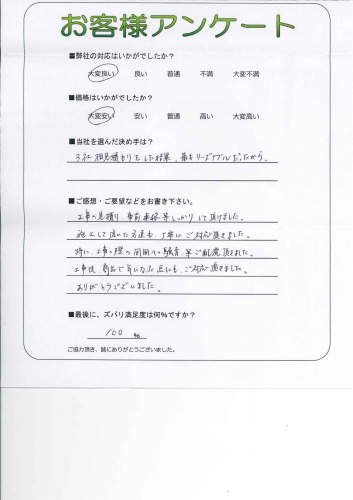 お客様アンケート
■弊社の対応はいかがでしたか?
大変良い 良い 普通 不満 大変不満
■価格はいかがでしたか?
大変安い 安い 普通 高い 大変高い
■当社を選んだ決め手は?
3社相見積もりをした結果、最もリーズナブルだったから。
■ご感想・ご要望などをお書き下さい。
工事の見積り、事前連絡等しっかりして頂けました。
施工して頂いた方達も、丁寧にご対応頂きました。
特に、工事の際の周囲への騒音等ご配慮頂きました。
工事後、商品で気になった点にも、ご対応頂きました。
ありがとうございました。
■最後に、ズバリ満足度は何%ですか?
100 %
ご協力頂き、誠にありがとうございました。